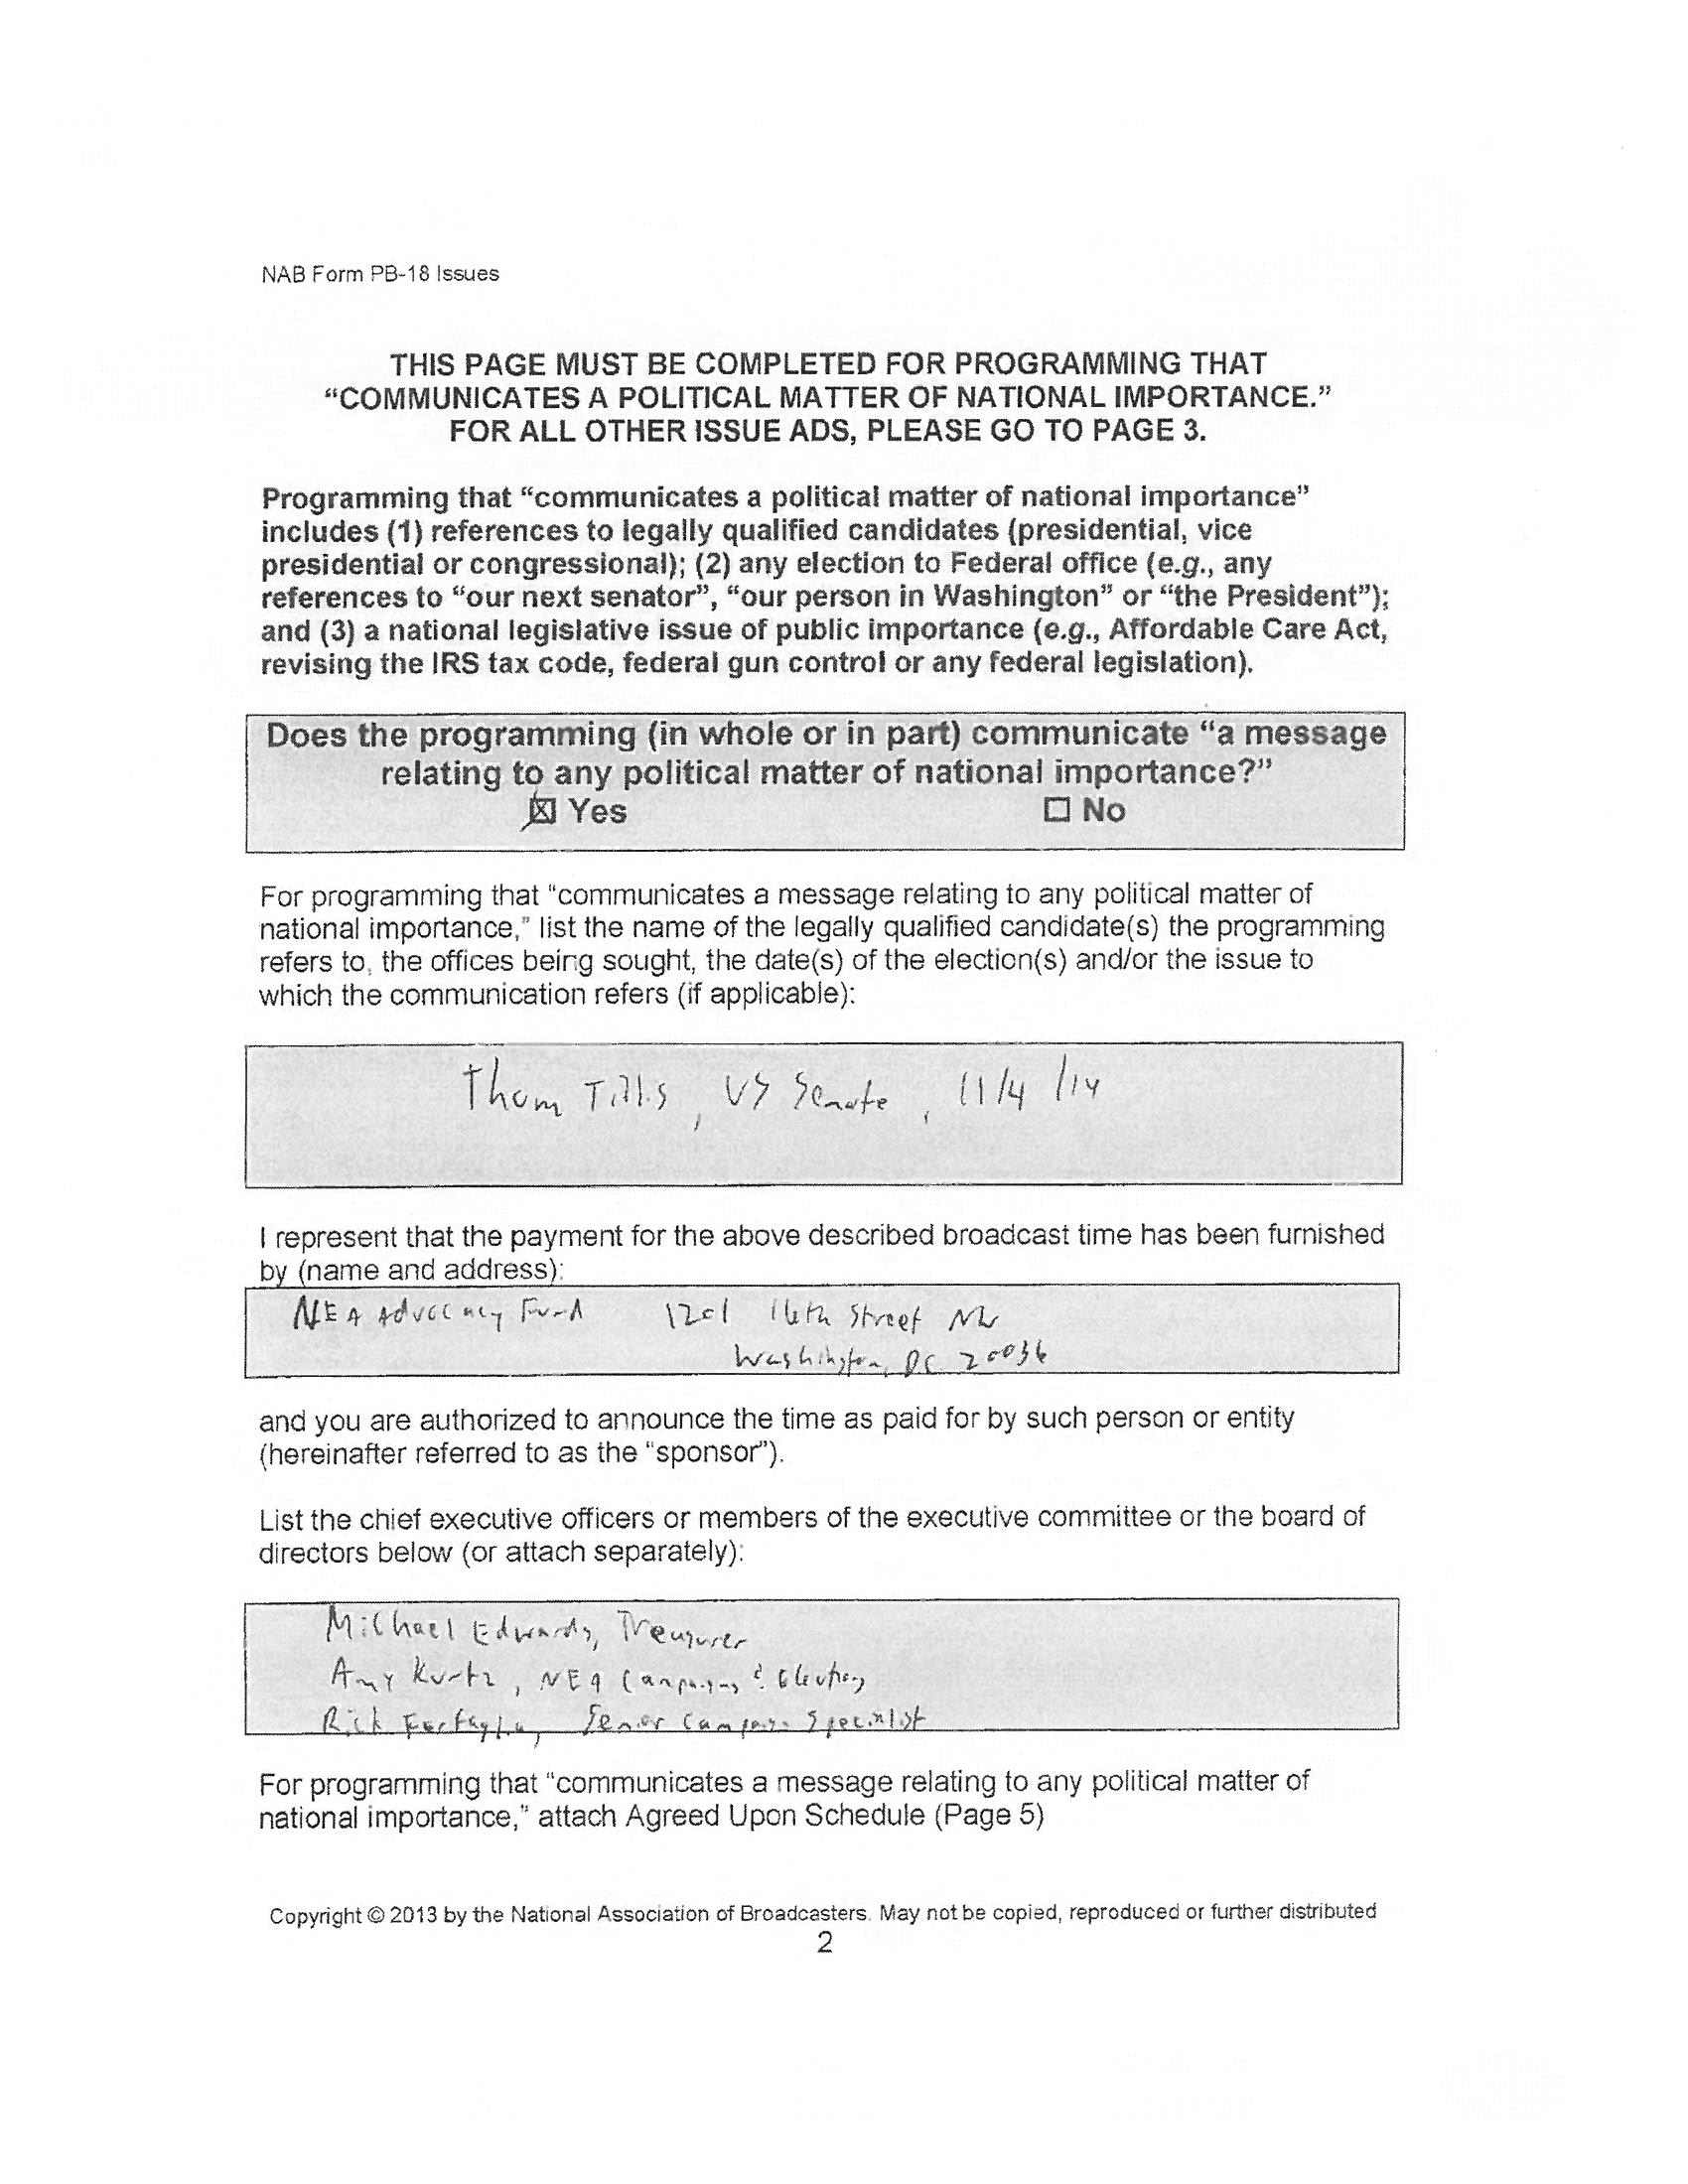 NAB Form PB-18 Issues
THIS PAGE MUST BE COMPLETED FOR PROGRAMMING THAT
“COMMUNICATES A POLITICAL MATTER OF NATIONAL IMPORTANCE.”
FOR ALL OTHER ISSUE ADS, PLEASE GO TO PAGE 3.
Programming that “communicates a political matter of national importance”
includes (1) references to legally qualified candidates (presidential, vice
presidential or congressional); (2) any election to Federal office (e.g., any
references to “our next senator”, “our person in Washington” or “the President”);
and (3) a national legislative issue of public importance (e.g., Affordable Care Act,
revising the IRS tax code, federal gun control or any federal legislation).
Does the programming (in whole or in part) communicate “a message
relating to any political matter of national importance?”
☒ Yes ☐ No
For programming that “communicates a message relating to any political matter of
national importance,” list the name of the legally qualified candidate(s) the programming
refers to, the offices being sought, the date(s) of the election(s) and/or the issue to
which the communication refers (if applicable):
Thom Tillis, US Senate, 11/4/14
I represent that the payment for the above described broadcast time has been furnished
by (name and address):
NEA Advocacy Fund 1201 16th Street NW
Washington, DC 20036
and you are authorized to announce the time as paid for by such person or entity
(hereinafter referred to as the “sponsor”).
List the chief executive officers or members of the executive committee or the board of
directors below (or attach separately):
Michael Edwards, Treasurer
Amy Kurtz, NEA Campaigns & Elections
Rick Senior Campaign Specialist
For programming that “communicates a message relating to any political matter of
national importance,” attach Agreed Upon Schedule (Page 5)
Copyright © 2013 by the National Association of Broadcasters. May not be copied, reproduced or further distributed
2